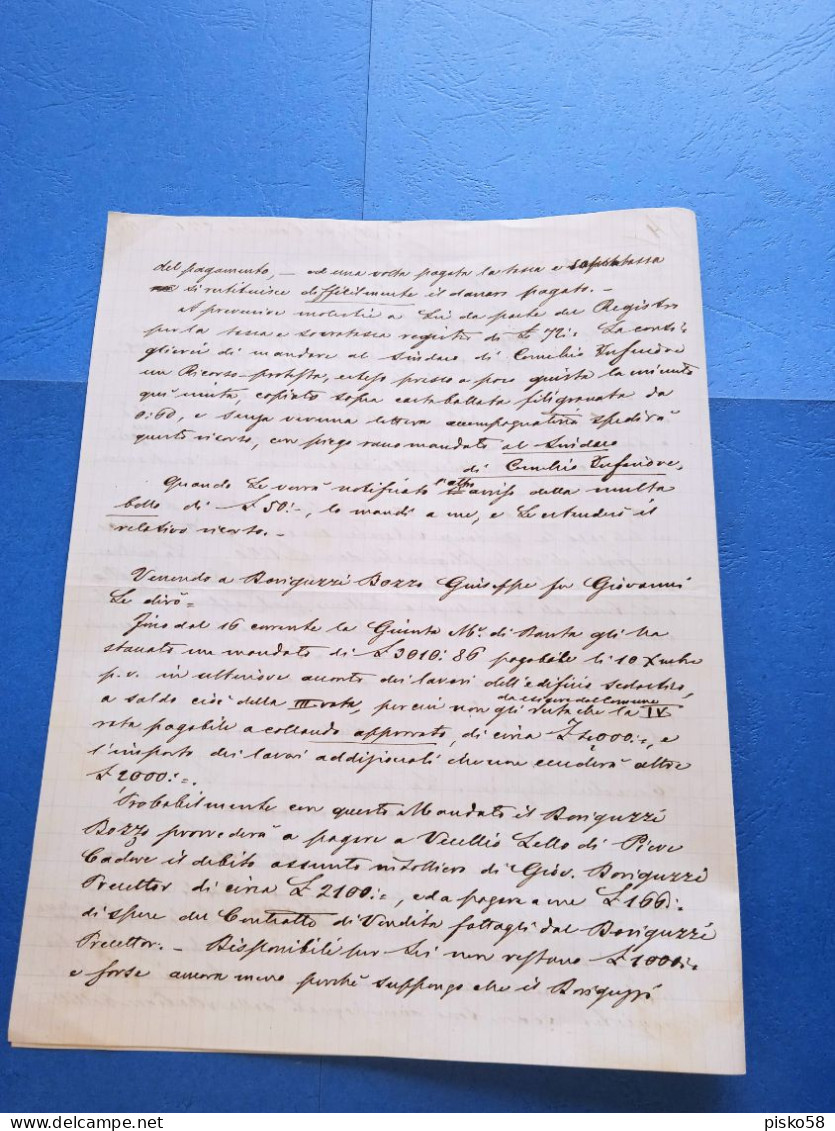 del pagamento, - ed una volta pagata la tassa e soprattassa
si restituisce difficilmente il danaro pagato. -
A prevenire molestie a Lei da parte del Registro
per la tassa e sovratassa registro di £ 72:= La consi=
glierei di mandare al Sindaco di Comelico Inferiore
un Ricorso-protesta, esteso presso a poco giusta la minuta
qui unita, copiato sopra carta bollata filigranata da
0:60, e senza veruna lettera accompagnatoria spedirà
questo ricorso, con piego raccomandato al Sindaco
di Comelico Inferiore.
Quando Le verrà notificato avviso della multa
bollo di £ 50:-, lo mandi a me, e Le estenderò il
relativo ricorso. -
Venendo a Boriguzzi Bozzo Giuseppe fu Giovanni
Le dirò =
Fino dal 16 corrente la Giunta M. di gli ha
staccato un mandato di £ 3010:86 pagabile li 10 Xmbre
p.v. in ulteriore acconto dei lavori dell'edifizio scolastico,
a saldo cioè della III rata, perciò non gli resta che la IV
da esigere dal Comune
rata pagabile a collaudo approvato, di circa 000:=, e
l'importo dei lavori addizionali che non eccederà oltre
£ 2000:=.
Probabilmente con questo Mandato il Boriguzzi
Bozzo provvederà a pagare a Vecellio Lello di Pieve
Cadore il debito assunto in sollievo di Giov. Boriguzzi
Precettor di circa £ 2100:=, ed a pagare a me £ 166:
di spese del Contratto di Vendita fattagli dal Boriguzzi
Precettor. - Disponibili per Lei non restano £ 1000:=
e forse ancora meno perchè suppongo che il Boriguzzi
pisko58